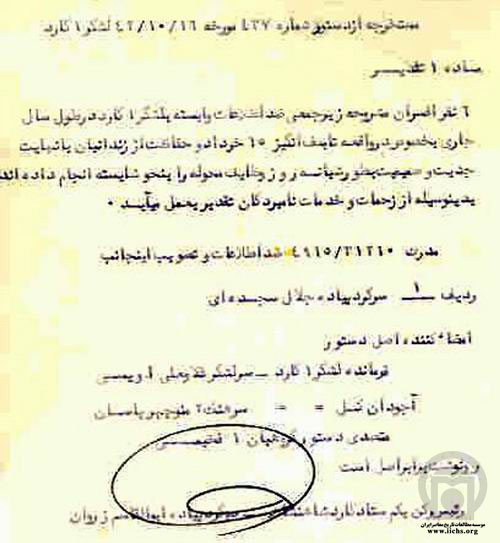 مستخرجه از دستور شماره ۲۳۷ مورخه ۴۲/۱۰/۱۶ لشکر ۱ گارد
ماده ۱ تقدیر
۶ نفر افسران مشروحه زیر جمعی ضد اطلاعات وابسته بلشکر ۱ گارد در طول سال
جاری بخصوص در واقعه تاسف انگیز ۱۵ خرداد و حفاظت از زندانیان با نهایت
جدیت و صمیمیت بطور شبانه روز وظایف محوله را بنحو شایسته انجام داده اند
بدینوسیله از زحمات و خدمات نامبردگان تقدیر بعمل میآید ۰
مدرک ۴۹۱۵/۳۱۲۶۰ ضد اطلاعات و تصویب اینجانب
ردیف ۱ سرگرد پیاده جلال سجده ای
امضا کننده اصل دستور
فرمانده لشکر ۱ گارد ـ سرلشکر غلامعلی اویسی
آجودان لشکر = = سرهنگ ۲ منوچهر پاسبان
متصدی دستور گروهبان ۱
رونوشت برابر اصل است
رئیس رکن یکم ستاد گارد شاهنشاهی سرگرد پیاده ابوالقاسم
موسسه مطالعات تاریخ معاصر ایران
www.iichs.org